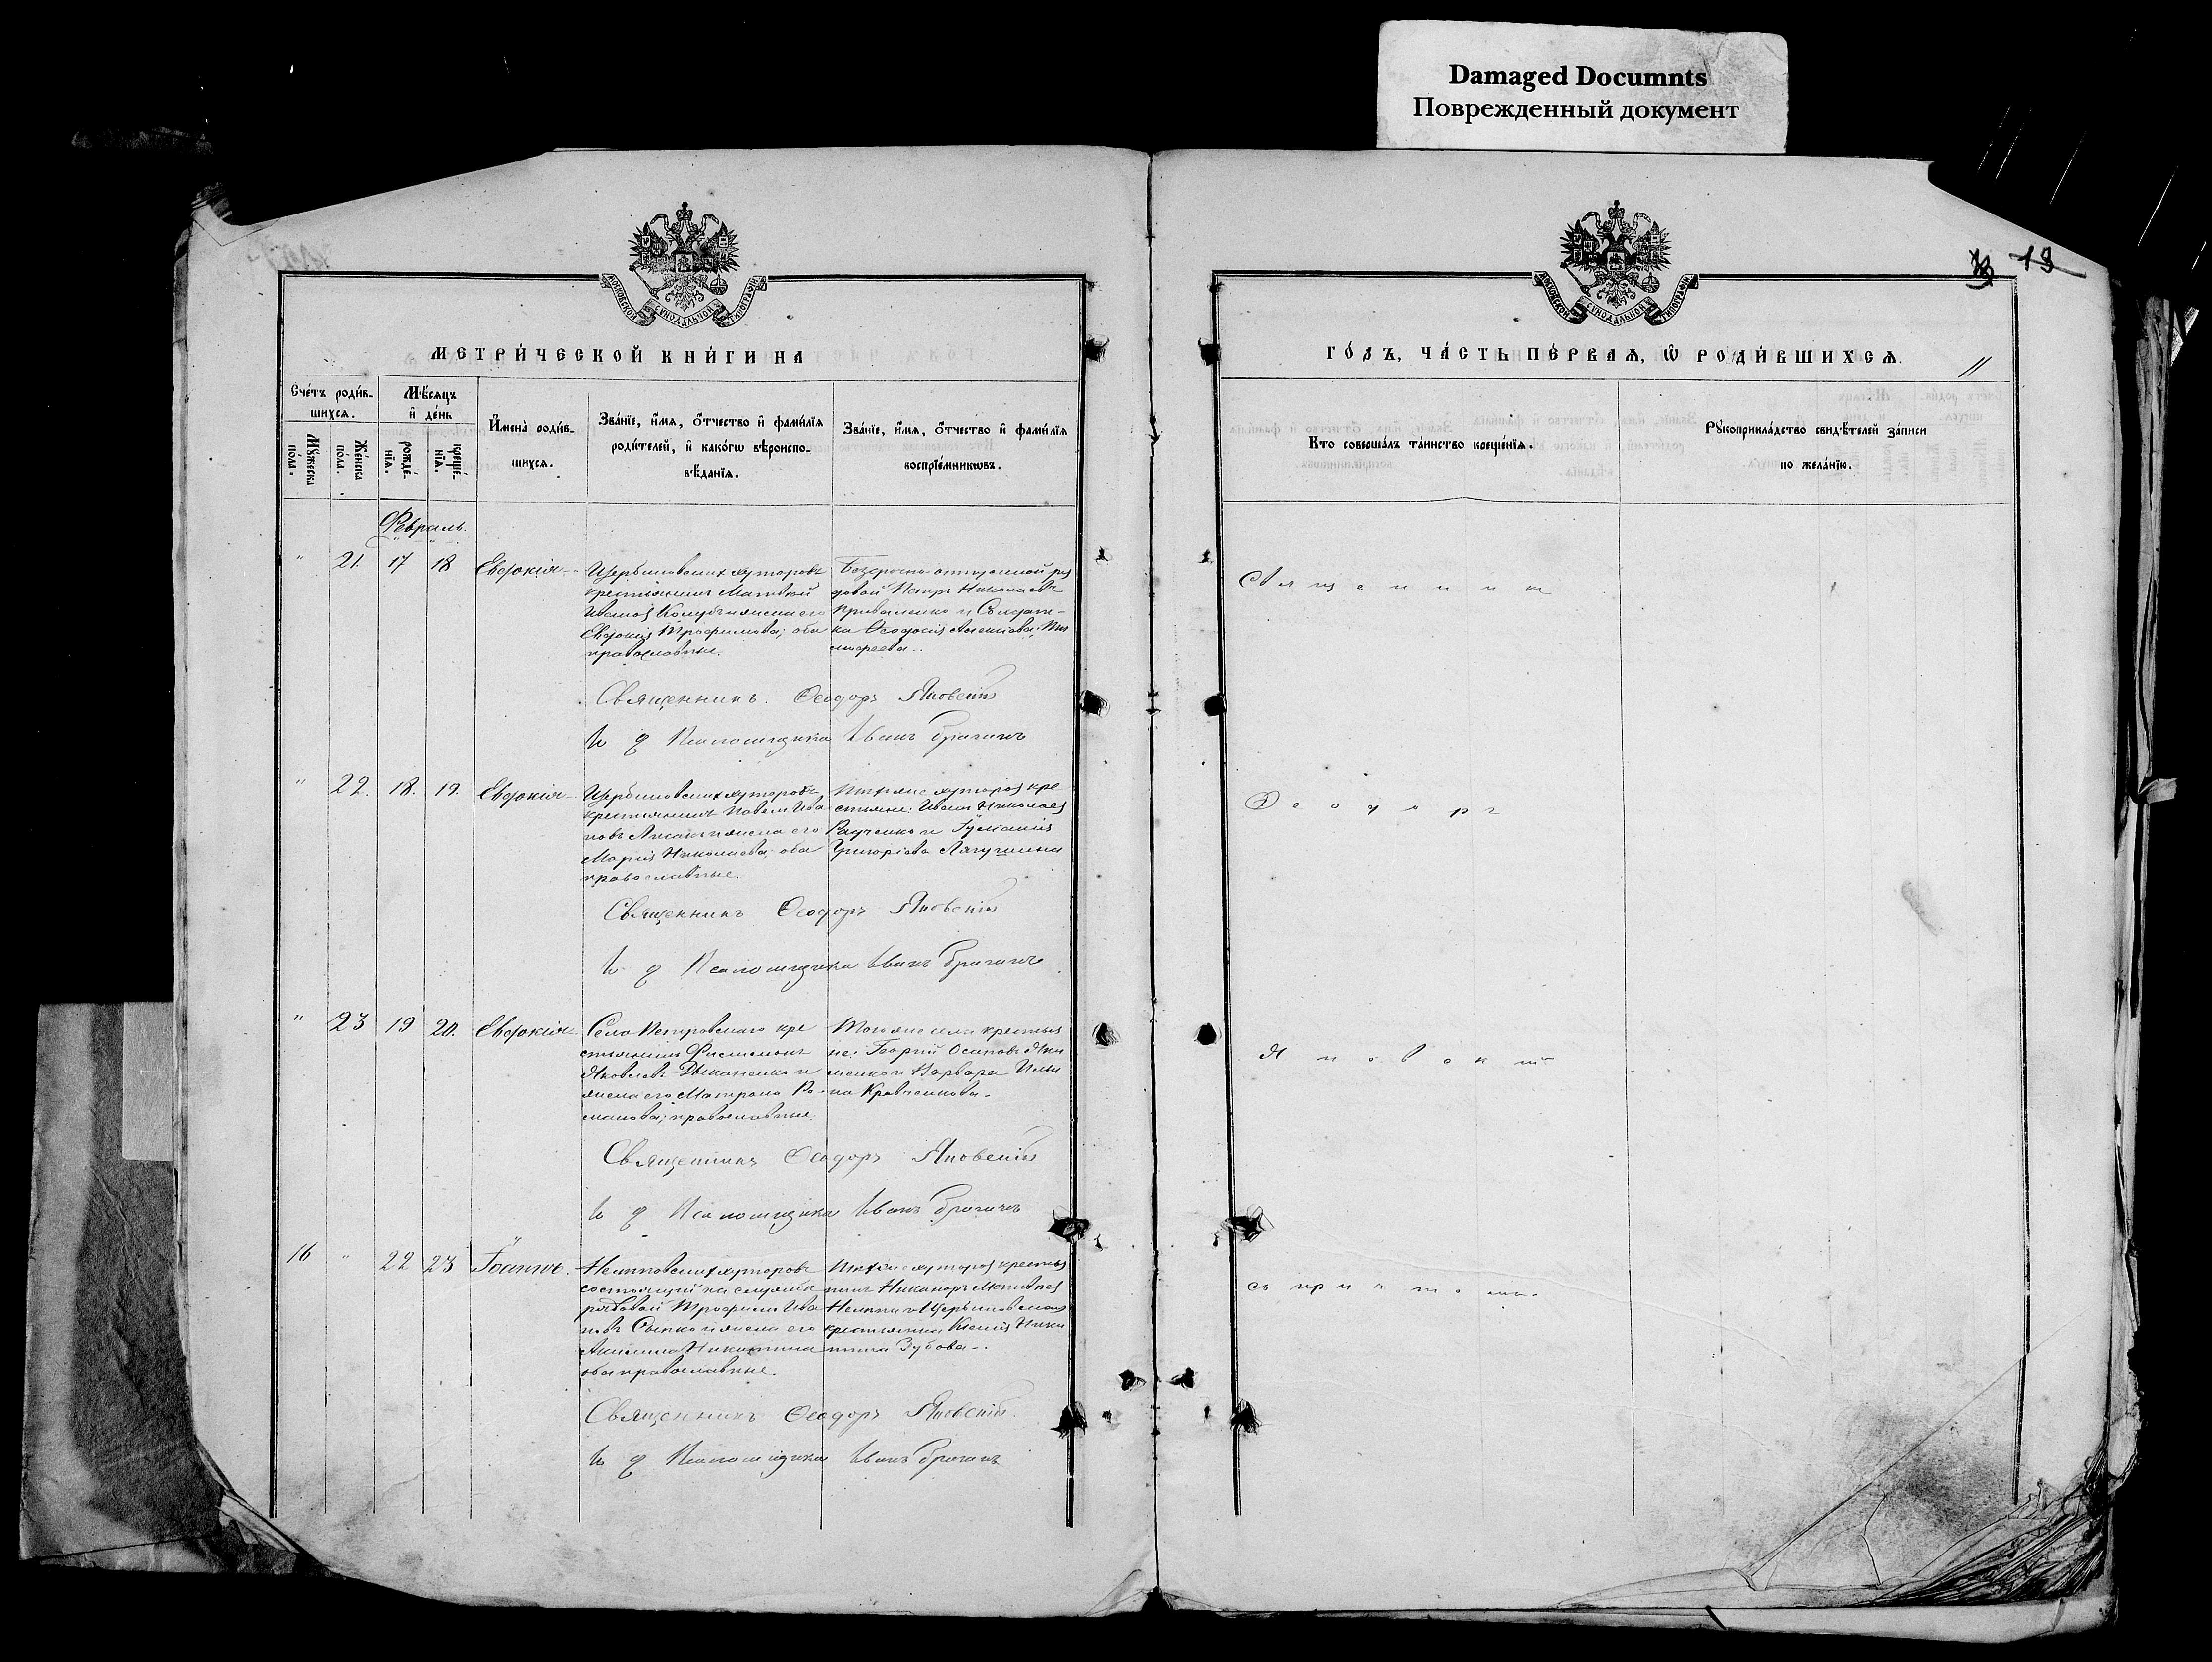 Damaged Documnts
Поврежденный документ
МОСКОВСКОЙ СѴНОДАЛЬНОЙ ТИПОГРАФІИ
МЕТРИ́ЧЕСКОЙ КНИ́ГИ НА
Сче́тъ роди́в-
шихся.
Му́жеска пола.
Же́нска пола.
Мѣ́сяцъ и҆ де́нь
рожде́-
нїя.
креще́-
нїя.
И҆мена̀ роди́в-
шихся.
Зва́нїе, и҆́мя, ѻ҆́тчество и҆ фами́лїя
роди́телей, и҆ како́гѡ вѣроиспо-
вѣ́данїя.
Зва́нїе, и҆́мя, ѻ҆́тчество и҆ фами́лїя
воспрїе́мникѡвъ.
Февраль.
" 21. 17 18 Евдокія
Щербиновскихъ хуторовъ
крестьянинъ Матвей
Ивановъ и жена его
Евдокія Трофимова; оба
православные.
Безсрочно-отпускной ря
довой Петръ Николаевъ
Приваленко и Солдат-
ка Ѳеодосія Алексіева
Священникъ. Ѳеодоръ Яновскій
И д Псаломщика Иванъ Брагинъ
" 22. 18. 19. Евдокія
Щербиновскихъ хуторовъ
крестьянинъ Павелъ Ива
новъ и жена его
Марія Николаева, оба
православные.
Тѣхже хуторовъ кре
стьяне: Иванъ Николаевъ
Радченко и Іуліанія
Григоріева
Священникъ Ѳеодоръ Яновскій
И. д Псаломщика Иванъ Брагинъ
" 23 19 20. Евдокія
Села Петровскаго кре
стьянинъ Филимонъ
Яковлевъ Дьяченко и
жена его Матрона Ро-
манова; православные.
Тогоже села крестья
не: Георгій Осиповъ Яки
менко и Варвара Ильи
на Кравченкова.
Священникъ Ѳеодоръ Яновскій
И д Псаломщика Иванъ Брагинъ
16 " 22 23 Іоаннъ.
хуторовъ
состоящій на службѣ
рядовой Трофимъ Ива
новъ и жена его
Акилина Никитина
оба православные.
Тѣхже хуторовъ крестья
нинъ Никаноръ Матвѣевъ
и Щербиновскихъ
крестьянка Ксенія Ники
тина Зубова.
Священникъ Ѳеодоръ Яновскій.
И д Псаломщика Иванъ Брагинъ
13
МОСКОВСКОЙ СѴНОДАЛЬНОЙ ТИПОГРАФІИ
ГО́ДЪ, ЧА́СТЬ ПЕ́РВАЯ, Ѡ҆ РОДИ́ВШИХСЯ.
11
Кто соверша́лъ та́инство креще́нїя.
Рꙋкоприкла́дство свидѣ́телей за́писи
по жела́нїю.
Священникъ
Ѳеодоръ
Яновскій
съ причтомъ.